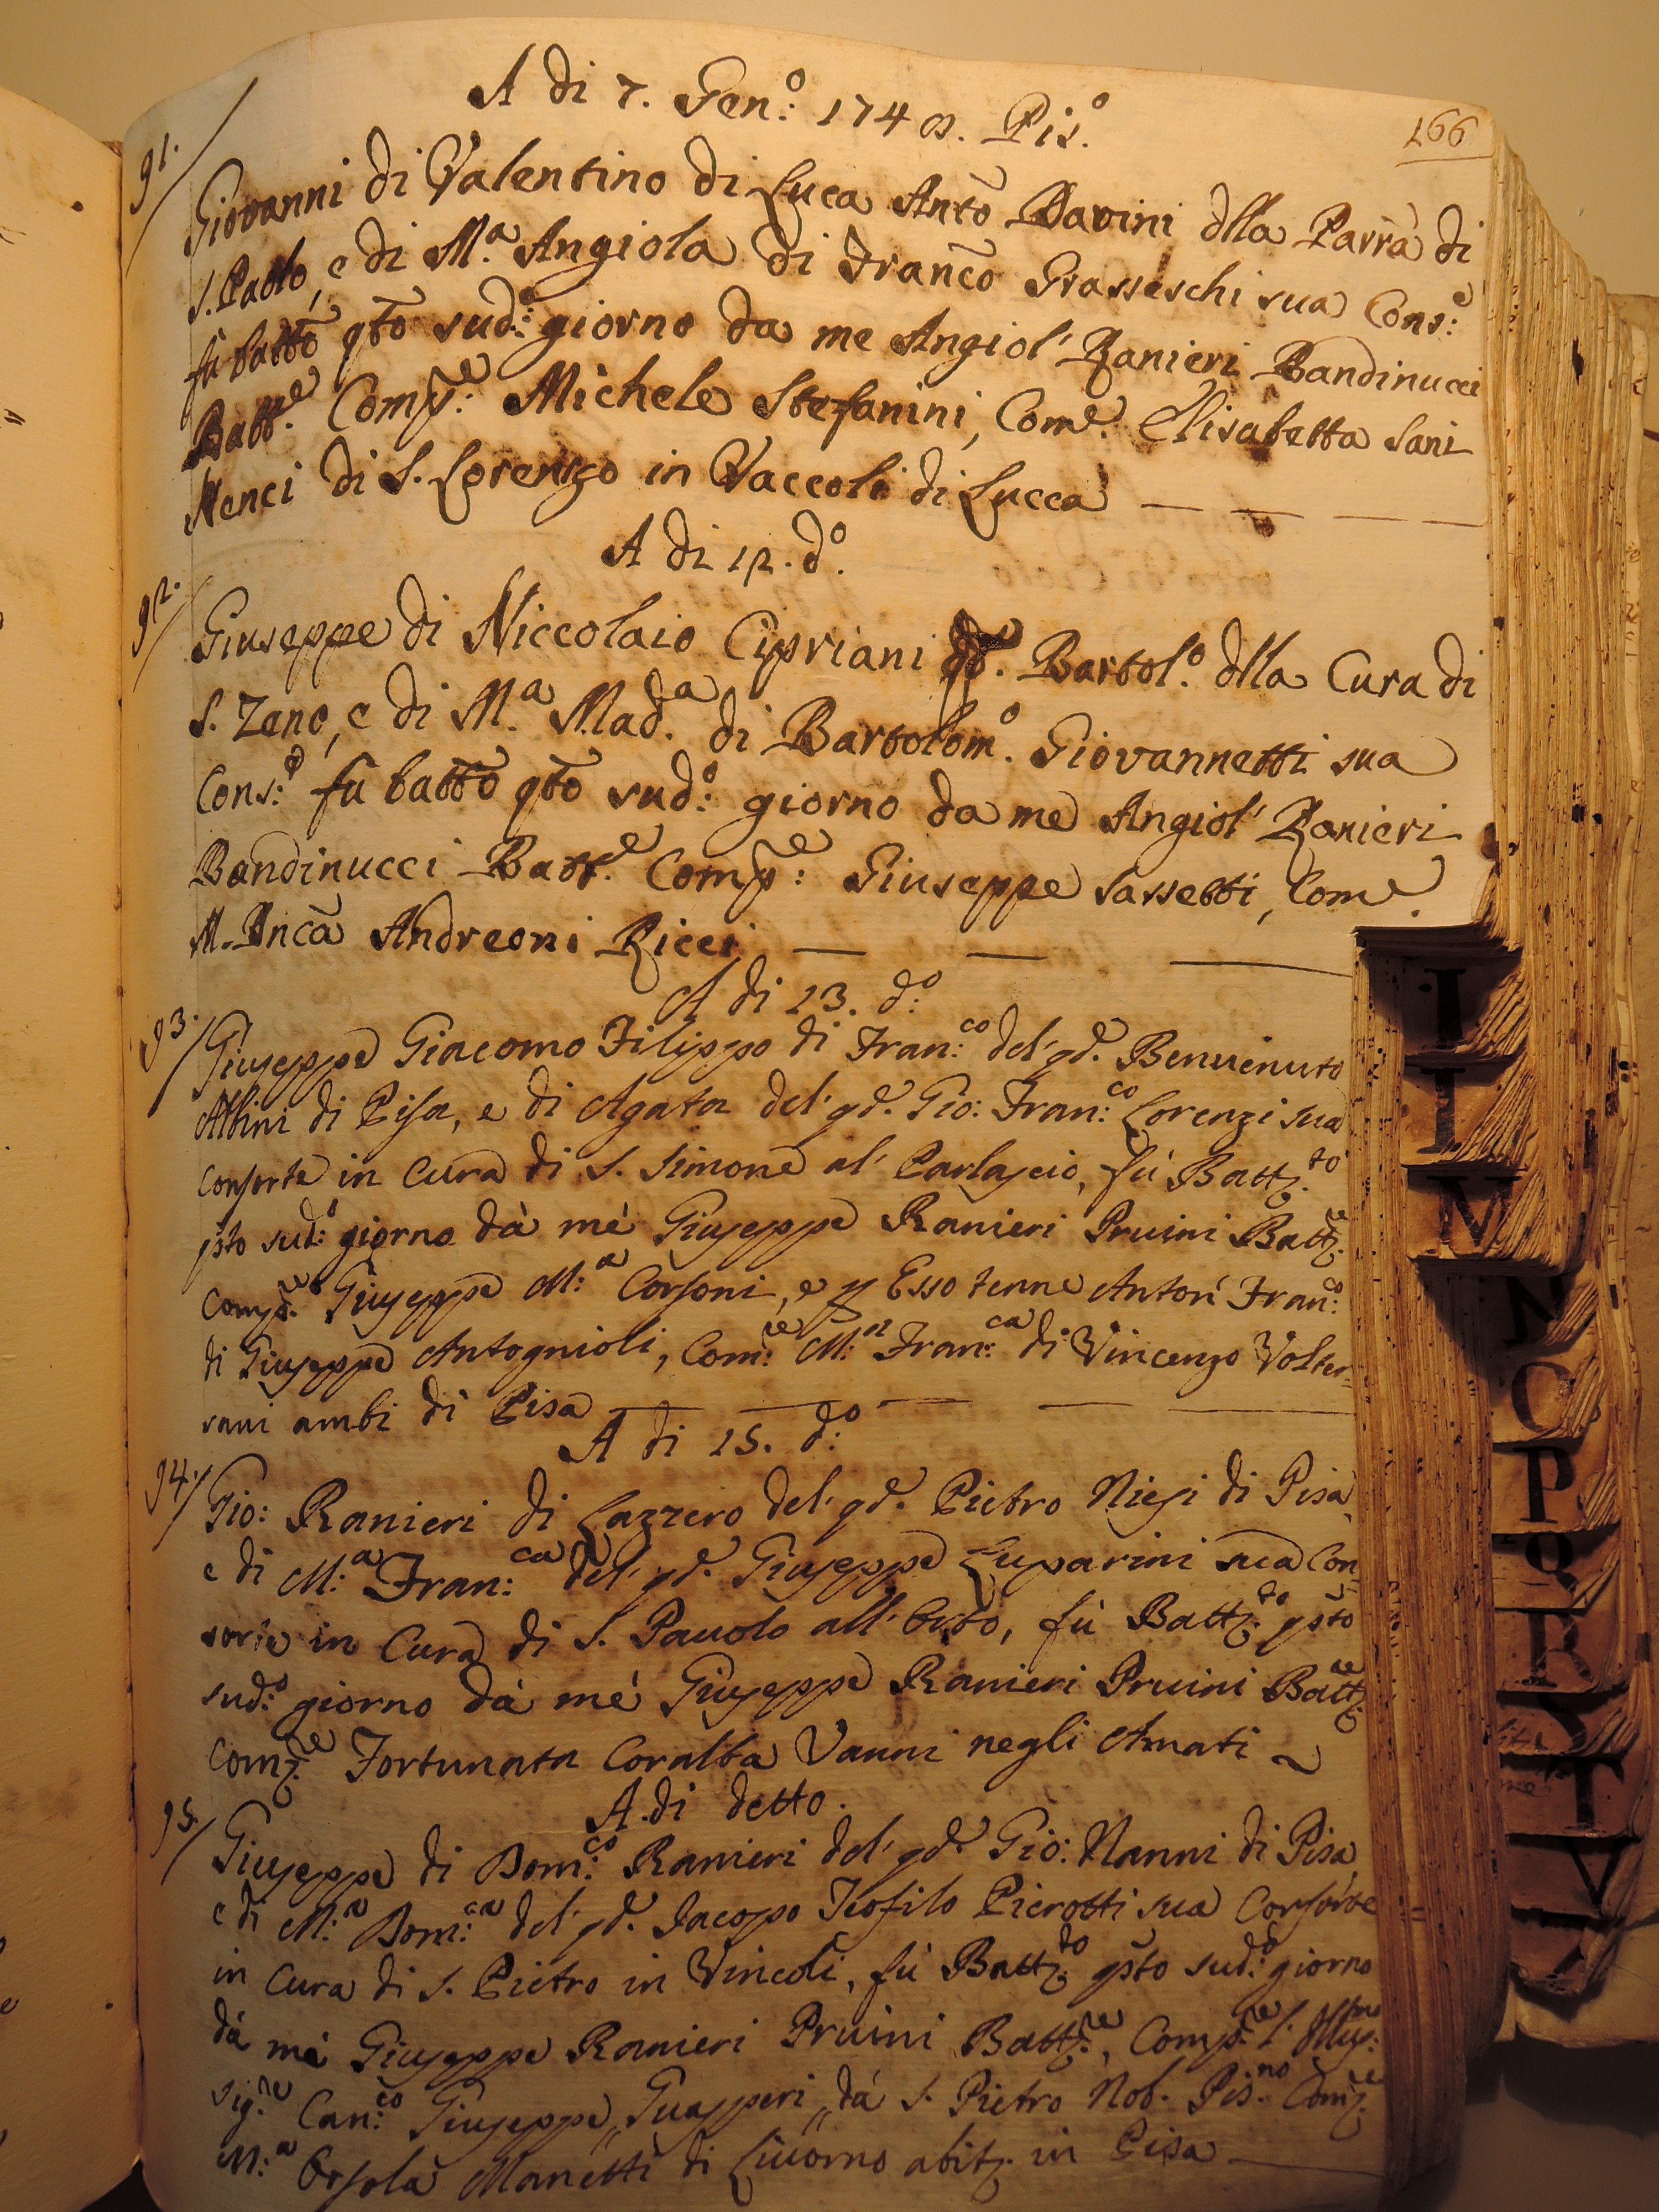 A di 7. Gen.o 1740. Pis.o
166
91. Giovanni di Valentino di Luca Anto Bavini dlla Parrà di
S. Paolo, e di M.a Angiola di Franco Grasseschi sua Cons:e
fù batto qto sud:o giorno da me Angiol' Ranieri Bandinucci
Batt.e Comp:e Michele Stefanini, Com.e Elisabetta Sani
Nenci di S. Lorenzo in Vaccoli di Lucca
A di 12. d.o
92. Giuseppe di Niccolaio Cipriani Bartol.o dlla Cura di
S. Zeno, e di M.a Mad.a di Bartolom.o Giovannetti sua
Cons:e fù batto qto sud:o giorno da me Angiol' Ranieri
Bandinucci Batt.e Comp:e Giuseppe Sassetti, Com.e
M. Anca Andreoni Ricci
A di 13. d:o
93. Giuseppe Giacomo Filippo di Fran:co del' qd. Benuenuto
Albini di Pisa, e di Agata del' qd. Gio: Fran:co Lorenzi sua
Consorte in Cura di S. Simone al' Parlascio, fù Battz.to
qsto sud:o giorno dà mé Giuseppe Ranieri Pruini Battz.re
Comp.re Giuseppe M:a Corsoni, e p Esso tenne Anton' Fran:o
di Giuseppe Antognioli, Com:re M:a Fran:ca di Vincenzo Volter=
rani ambi di Pisa
A di 15. d:o
94. Gio: Ranieri di Lazzero del' qd. Pietro Niesi di Pisa,
e di M:a Fran:ca del' qd. Giuseppe Luparini sua Con
sorte in Cura di S. Pauolo all' Orto, fù Battz.to qsto
sud:o giorno dà mé Giuseppe Ranieri Pruini Battz.re
Comz.re Fortunata Coralba Vanni negli Amati
A di detto.
95. Giuseppe di Dom:co Ranieri del' qd. Gio: Nanni di Pisa
e di M:a Dom:ca del' qd. Jacopo Teofilo Pierotti sua Consorte
in Cura di S. Pietro in Vincoli, fù Battz.to qsto sud:o giorno
dà mé Giuseppe Ranieri Pruini Battz.re, Comp.re l' Illus:mo
Sig.re Can:co Giuseppe,, Guasperi,, dà S. Pietro Nob. Pis.no Comz.re
M:a Orsola Manetti di Liuorno abitz. in Pisa
I
L
V
N
O
P
Q
R
S
T
V